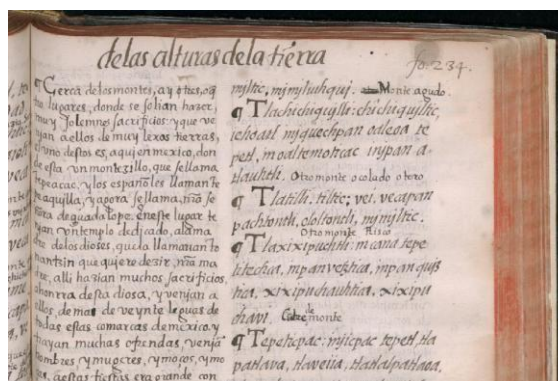 de las alturas de la tierra
fo. 234.
¶ Cerca de los montes, ay tres, o q̃
tro lugares, donde se solian hazer,
muy solemnes sacrificios: y que ve
njan a ellos de muy lexos tierras,
el vno destos es, aqui en mexico, don
de esta vn montezillo, que se llama
tepeacac, y los españoles llaman te
peaquilla, y agora se llama, nr̃a se
ñora de guadalope. en este lugar te
njan vn templo dedicado, a la ma
dre de los dioses, que la llamauan to
nantzin que quiere dezir, nr̃a ma
dre, alli hazian muchos sacrificios,
a honrra desta diosa, y venjan a
ellos, de mas de veynte leguas de
todas estas comarcas de mexico, y
trayan muchas ofrendas, venjã
hombres y mugeres, y moços, y mo
ças, a estas fiestas era grande con
mjltic, mjmjliuhquj. Monte agudo.
¶ Tlachichiquilli: chichiquiltic,
ichoatl mjquechpan odeoa te
petl, moaltemotzac injpan a
tlauhtli. Otro monte o colado otero
¶ Tlatilli, tiltic; vei, vecapan
pachtontli, ololtontli, mjmjltic.
Otro monte Risco
¶ Tlaxixipuchtli: mcana tepe
litechca, mpanvetztica, mpanquiz
tica, xixipuchauhtica, xixipu
chavi. Cubre de monte
¶ Tepeticpac: mjicpac tepetl, tla
patlava, tlaveiia, tlatlalpatlaoa,